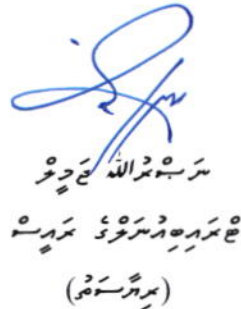 ނަޞްރުﷲ ޖަމީލް
ޓްރައިބިއުނަލްގެ ރައީސް
(ރިޔާސަތު)